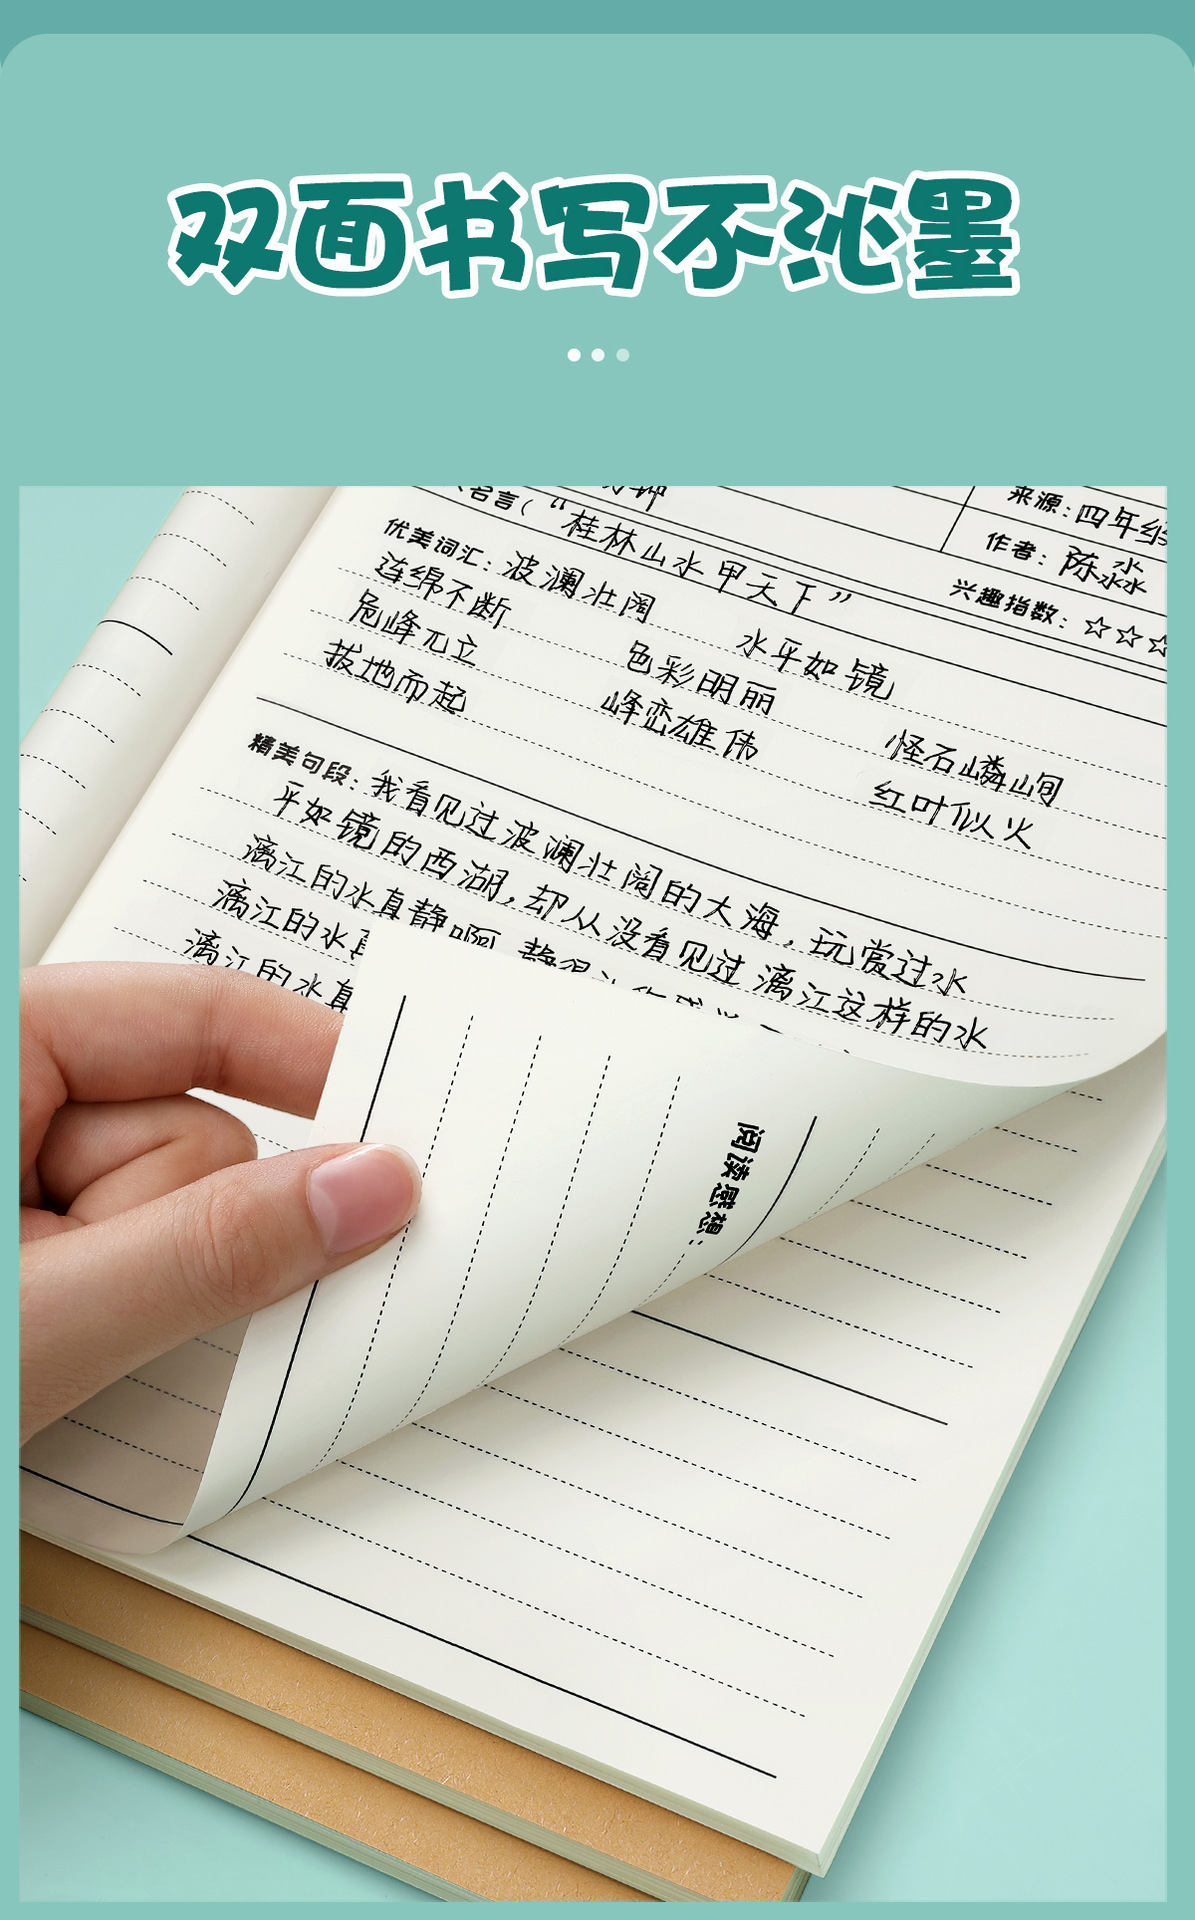 双面书写不沁墨
来源:四年级
名言("桂林山水甲天下"
作者:陈淼淼
优美词汇:波澜壮阔 水平如镜
兴趣指数:☆☆☆
连绵不断 色彩明丽 怪石嶙峋
危峰兀立 峰峦雄伟 红叶似火
拔地而起
精美句段:我看见过波澜壮阔的大海,玩赏过水
平如镜的西湖,却从没看见过漓江这样的水
漓江的水真静啊
漓江的水真
漓江的水真
阅读感想: